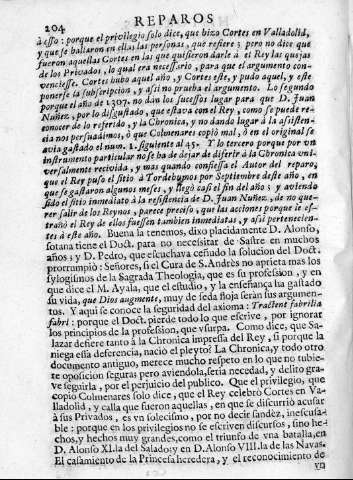 204 REPAROS
à esso: porque el privilegio solo dice, que hizo Cortes en Valladolid,
y que se hallaron en ellas las personas, que refiere; pero no dice que
fueron aquellas Cortes en las que quisieron darle à el Rey las quejas
de los Privados, lo qual era necessario, para que el argumento con-
vencisse. Cortes hubo aquel año, y Cortes este, y pudo aquel, y este
ponerse la subscripcion, y assi no prueba el argumento. Lo segundo
porque el año de 1307. no dàn los sucessos lugar para que D. Juan
Nuñez, por lo disgustado, que estava con el Rey, como se puede re-
conocer de lo referido, y la Chronica, y no dando lugar à la asisten-
cia nos persuadimos, ò que Colmenares copiò mal, ò en el original se
avia gastado el num. 1. siguiente al 45. Y lo tercero porque por un
instrumento particular no se ha de dejar de diferir à la Chronica uni-
versalmente recivida, y mas quando confiessa el Autor del reparo,
que el Rey puso el sitio à Tordehumos por Septiembre deste año, en
que se gastaron algunos meses, y llegò casi el fin del año; y aviendo
sido el sitio immediato à la resistencia de D. Juan Nuñez, de no que-
rer salir de los Reynos, parece preciso, que las acciones porque le es-
trañò el Rey de ellos fuessen tambien immediatas, y assi pertenecien-
tes à este año. Buena la tenemos, dixo placidamente D. Alonso,
sotana tiene el Doct. para no necessitar de Sastre en muchos
años; y D. Pedro, que escuchava ceñudo la solucion del Doct.
prorrumpiò: Señores, si el Cura de S. Andrès no aprieta mas los
sylogismos de la Sagrada Theologia, que es su profession, y en
que dice el M. Ayala, que el estudio, y la enseñança ha gastado
su vida, que Dios augmente, muy de seda floja seràn sus argumen-
tos. Y aqui se conoce la seguridad del axioma: Tractent fabrilia
fabri: porque el Doct. pierde todo lo que escrive, por ignorar
los principios de la profession, que vsurpa. Como dice, que Sa-
lazar defiere tanto à la Chronica impressa del Rey, si porque la
niega essa deferencia, naciò el pleyto? La Chronica, y todo otro
documento antiguo, merece mucho respeto en lo que no tubie-
re oposicion seguras pero aviendola, seria necedad, y delito gra-
ve seguirla, por el perjuicio del publico. Que el privilegio, que
copiò Colmenares solo dice, que el Rey celebrò Cortes en Va-
lladolid, y calla que fueron aquellas, en que se discurriò acusar
à sus Privados, es vn solecismo, por no decir sandèz, inescusa-
ble: porque en los privilegios no se escriven discursos, sino he-
chos, y hechos muy grandes, como el triunfo de vna batalla, en
D. Alonso XI. la del Salado; y en D. Alonso VIII. la de las Navas.
El casamiento de la Princesa heredera, y el reconocimiento de
vn